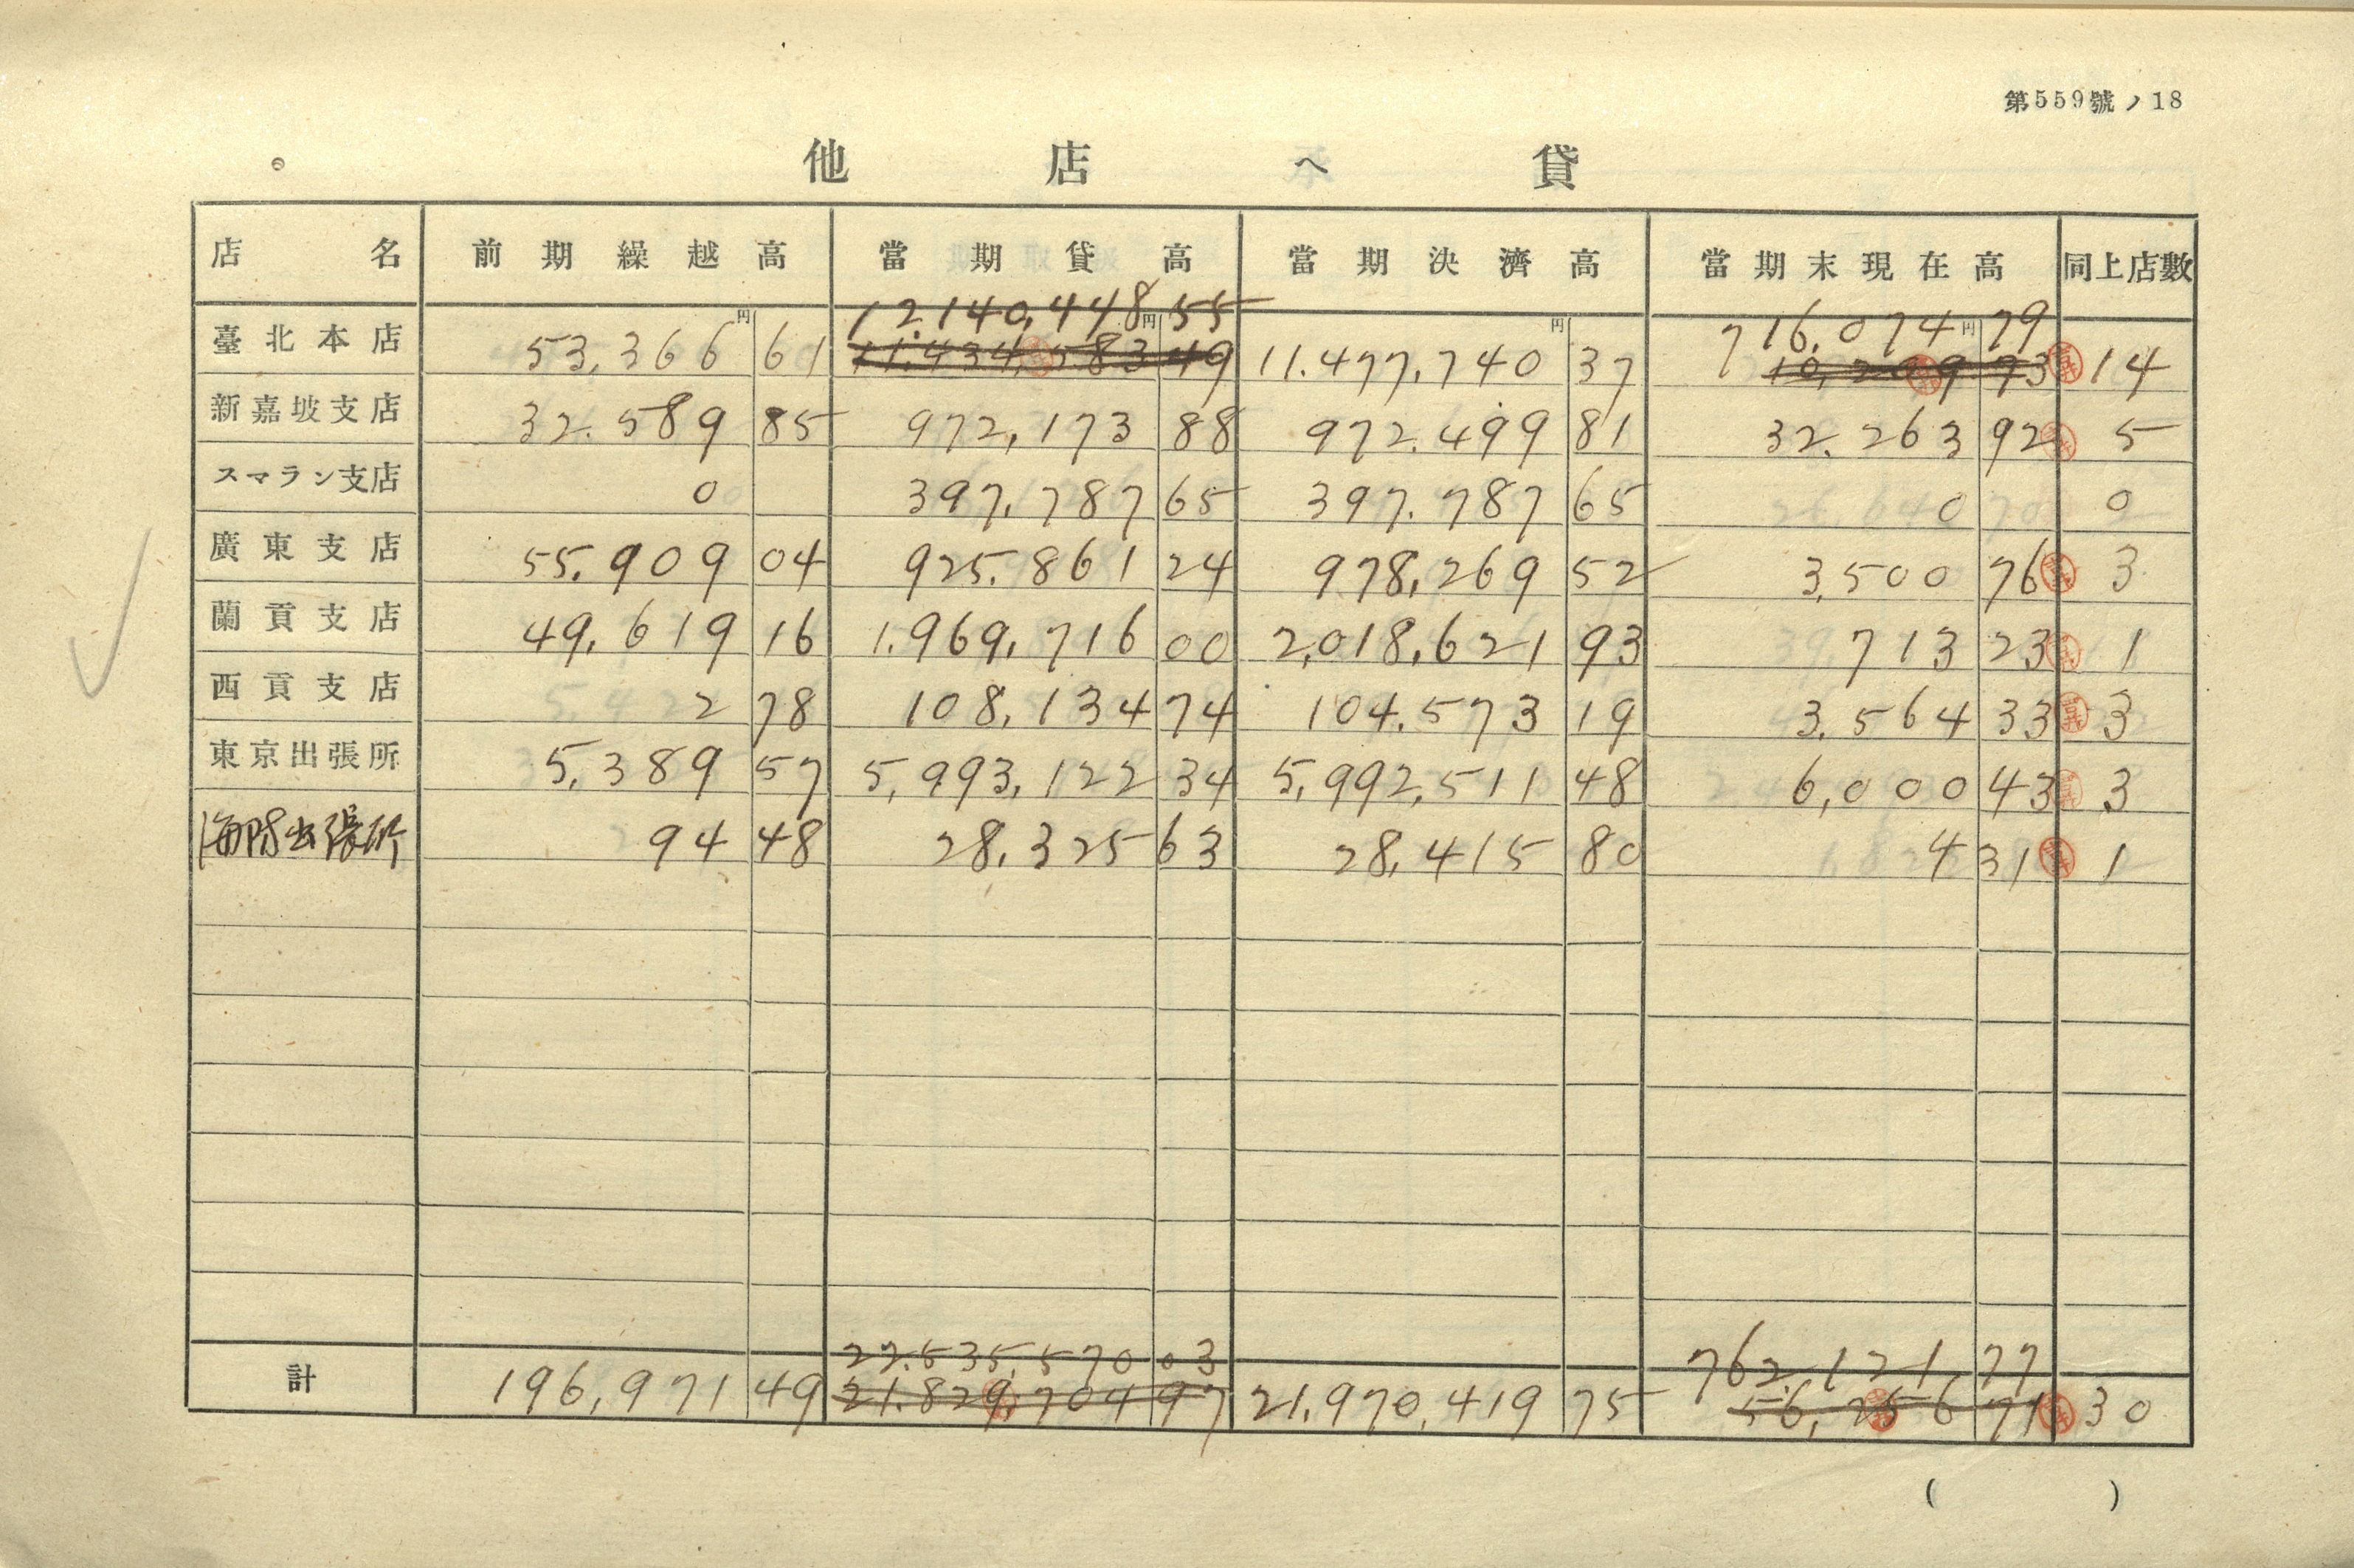 第559號ノ18
他店へ貸
店名 前期繰越高 當期貸高 當期決濟高 當期末現在高 同上店數
12.140,448 55 716,074 79
臺北本店 53,366 61 11.434,583 49 11.477,740 37 10,209 73 14
新嘉坡支店 32.589 85 972,173 88 972.499 81 32.263 92 5
スマラン支店 0 397,787 65 397.787 65 0 0
廣東支店 55.909 04 925.861 24 978,269 52 3,500 76 3
蘭貢支店 49,619 16 1.969,716 00 2,018,621 93 713 23 1
西貢支店 2 78 108,134 74 104.573 19 3.564 33 3
東京出張所 5,389 57 5,993,122 34 5,992,511 48 6,000 43 3
海防出張所 94 48 28,325 63 28,415 80 4 31 1
22.535,570 03 762,121 77
計 196,971 49 21.829,704 97 21,970,419 75 56,256 71 30
( )